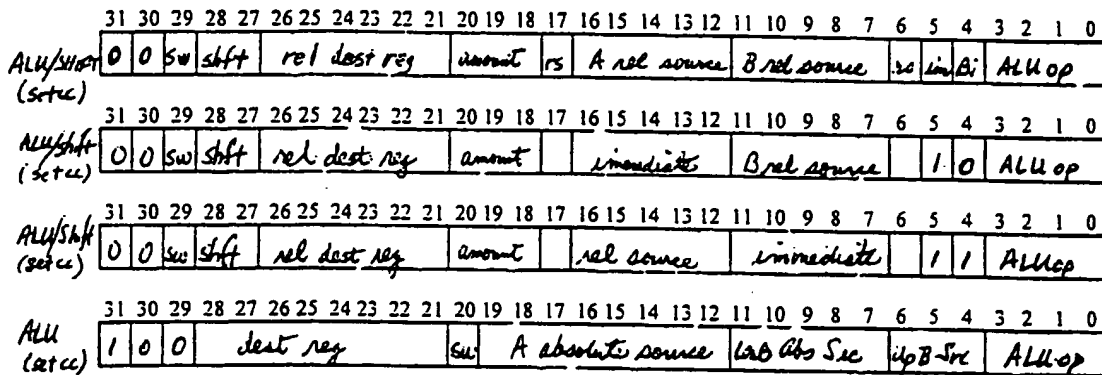 31 30 29 28 27 26 25 24 23 22 21 20 19 18 17 16 15 14 13 12 11 10 9 8 7 6 5 4 3 2 1 0
ALU/SHIFT 0 0 sw shft rel dest reg amount rs A rel source B rel source im Bi ALU op
(setcc)
31 30 29 28 27 26 25 24 23 22 21 20 19 18 17 16 15 14 13 12 11 10 9 8 7 6 5 4 3 2 1 0
ALU/shft 0 0 sw shft rel dest reg amount immediate B rel source 1 0 ALU op
(setcc)
31 30 29 28 27 26 25 24 23 22 21 20 19 18 17 16 15 14 13 12 11 10 9 8 7 6 5 4 3 2 1 0
ALU/Shft 0 0 sw shft rel dest reg amount rel source immediate 1 1 ALUop
(setcc)
31 30 29 28 27 26 25 24 23 22 21 20 19 18 17 16 15 14 13 12 11 10 9 8 7 6 5 4 3 2 1 0
ALU 1 0 0 dest reg sw A absolute source B Abs Src B-Src ALU-op
(setcc)